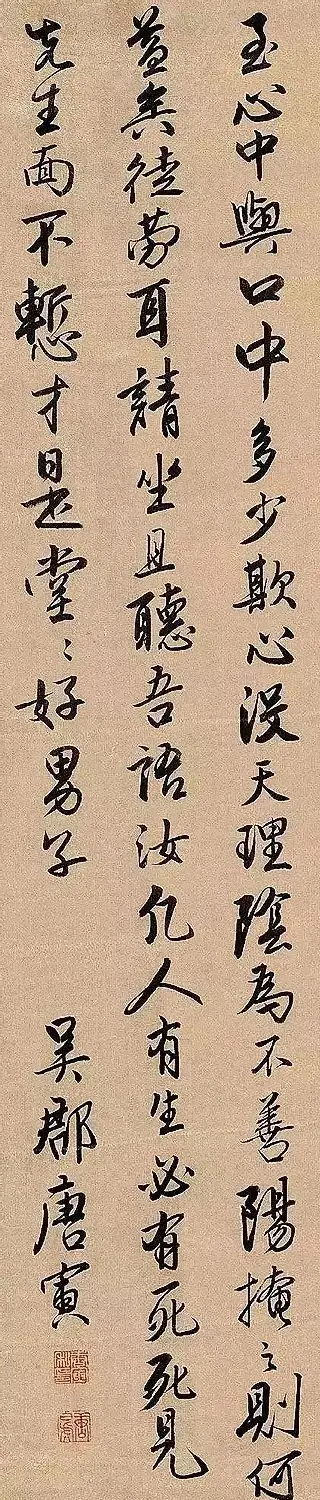 至心中與口中多少欺心沒天理陰為不善陽掩之則何
益矣徒勞耳請坐且聽吾語汝凡人有生必有死死見
先生面不慙才是堂〻好男子 吳郡唐寅